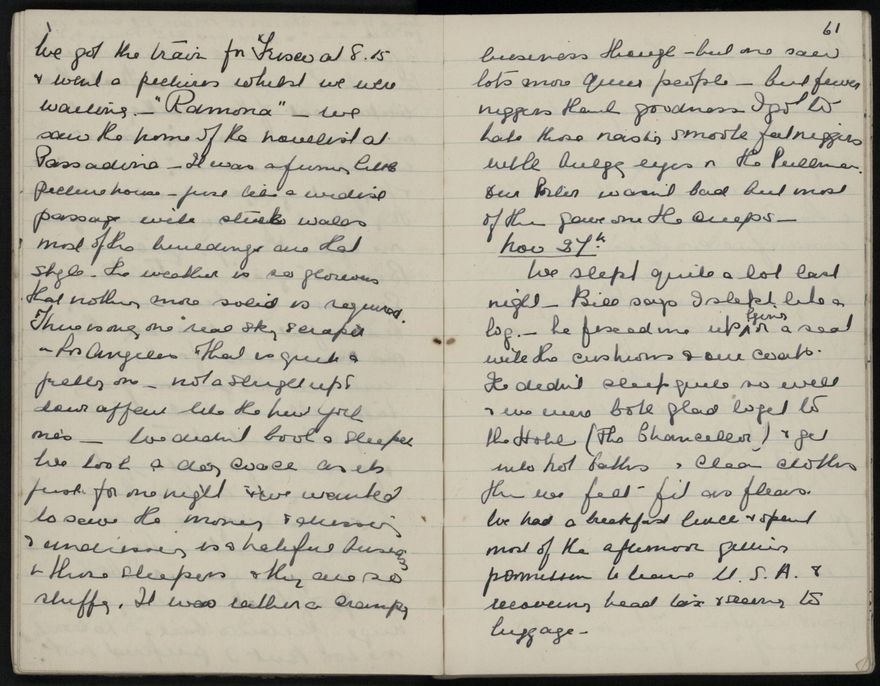 We got the train for 'Frisco at 8.15
& went a pictures whilst we were
waiting. - "Ramona" - we
saw the home of the novelist at
Passadina - It was a funny little
picture house - just like a
passage with stucko walls
most of the buildings are that
style. The weather is so glorious
that nothing more solid is required.
There is only one real sky scraper
in Los Angeles & that is quite a
pretty one - not a straight up &
down affair like the New York
ones - We didn't book a sleeper
We took a day coach as its
just for one night & we wanted
to save the money & dressing
& undressing is a hateful business
in those sleepers & they are so
stuffy. It was rather a crampy
61
business though - but one saw
lots more queer people - but fewer
niggers thank goodness I got to
hate those nasty smooth fat niggers
with bulgy eyes on the Pullman.
Our Porter wasn't bad but most
of them gave one the creeps -
Nov 27th
We slept quite a lot last
night - Bill says I slept like a
log. - he fixed me up lying on a seat
with the cushions & our coats.
He didn't sleep quite so well
& we were both glad to get to
the Hotel (The Chancellor) & get
into hot baths & clean clothes
then we felt fit as fleas.
We had a breakfast lunch & spent
most of the afternoon getting
permission to leave U.S.A. &
recovering head tax & seeing to
luggage -